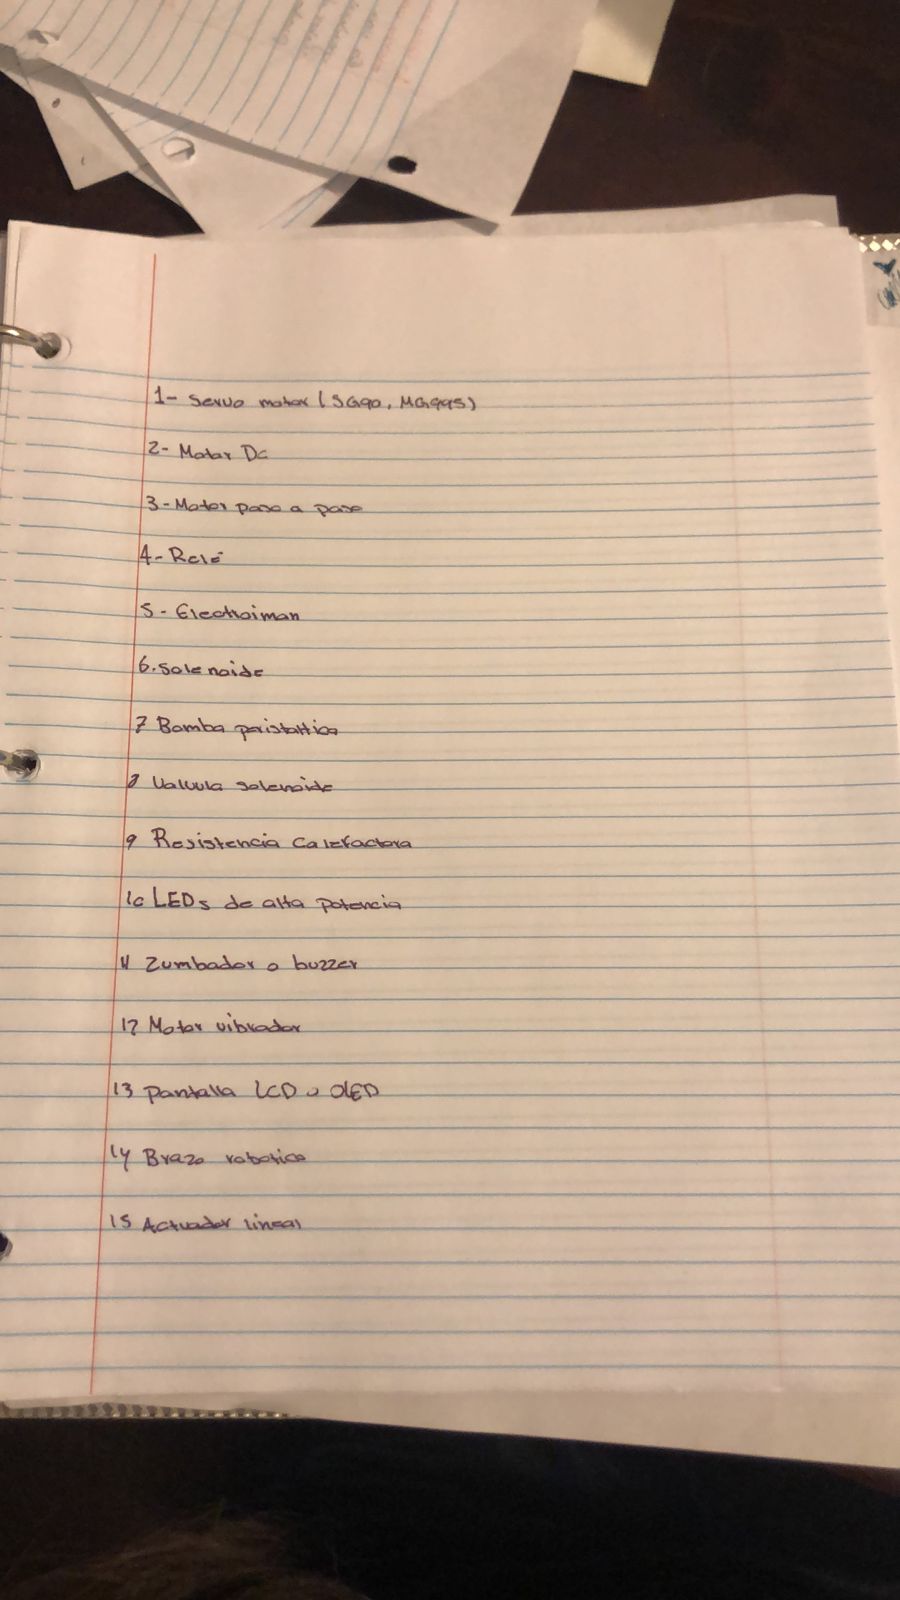 1- Servo motor (SG90, MG995)
2- Motor Dc
3- Motor paso a paso
4- Relé
5- Electroiman
6. Solenoide
7 Bomba peristaltica
8 Valvula solenoide
9 Resistencia Calefactora
10 LEDs de alta potencia
11 Zumbador o buzzer
12 Motor vibrador
13 Pantalla LCD u OLED
14 Brazo robotico
15 Actuador lineal